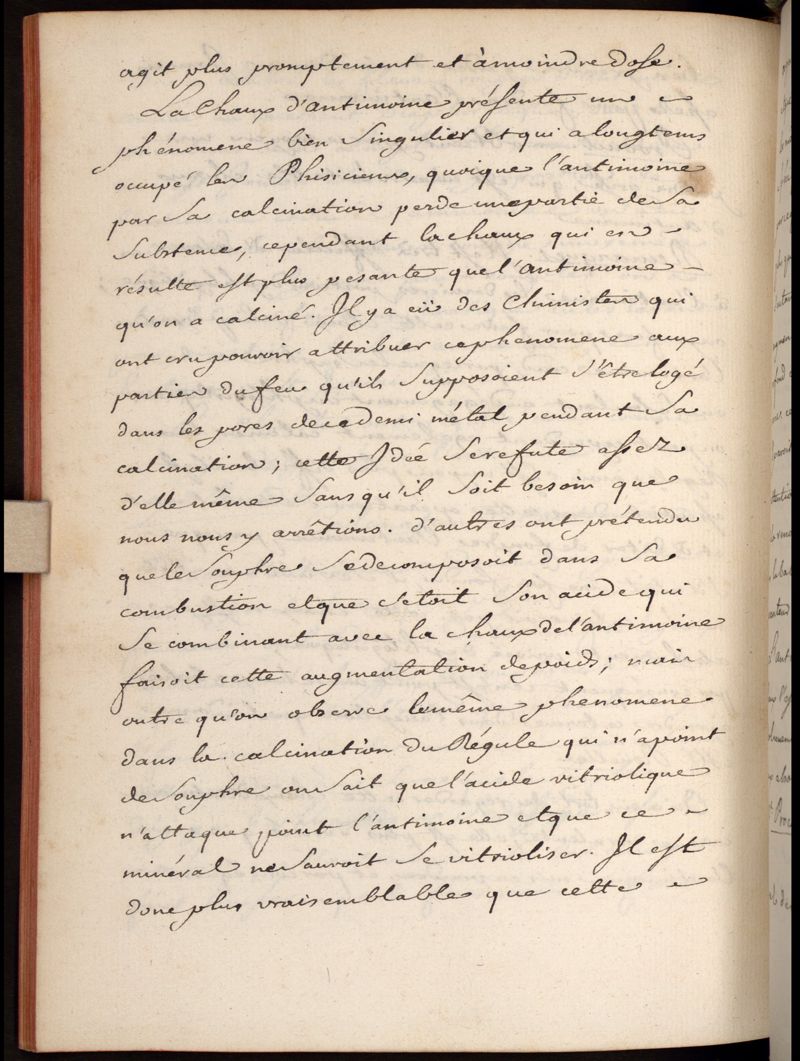 agit plus promptement et à moindre dose.
La Chaux d'antimoine présente un
phénomene bien Singulier et qui a longtems
occupé les Phisiciens, quoique l'antimoine
par Sa calcination perde une partie de Sa
Substence, cependant la chaux qui en
résulte est plus pesante que l'antimoine
qu'on a calciné. Il y a eü des Chimistes qui
ont cru pouvoir attribuer ce phenomene aux
parties du feu qu'ils Supposoient S'être logé
dans les pores de ce demi métal pendant Sa
calcination; cette Idée Se refute assez
d'elle même Sans qu'il Soit besoin que
nous nous y arrêtions. d'autres ont prétendu
que le Souphre Se decomposoit dans Sa
combustion et que c'etoit Son acide qui
Se combinant avec la chaux de l'antimoine
faisoit cette augmentation de poids; mais
outre qu'on observe le même phenomene
dans la calcination du Régule qui n'a point
de Souphre on Sait que l'acide vitriolique
n'attaque point l'antimoine et que ce
minéral ne Sauroit Se vitrioliser. Il est
donc plus vraisemblable que cette